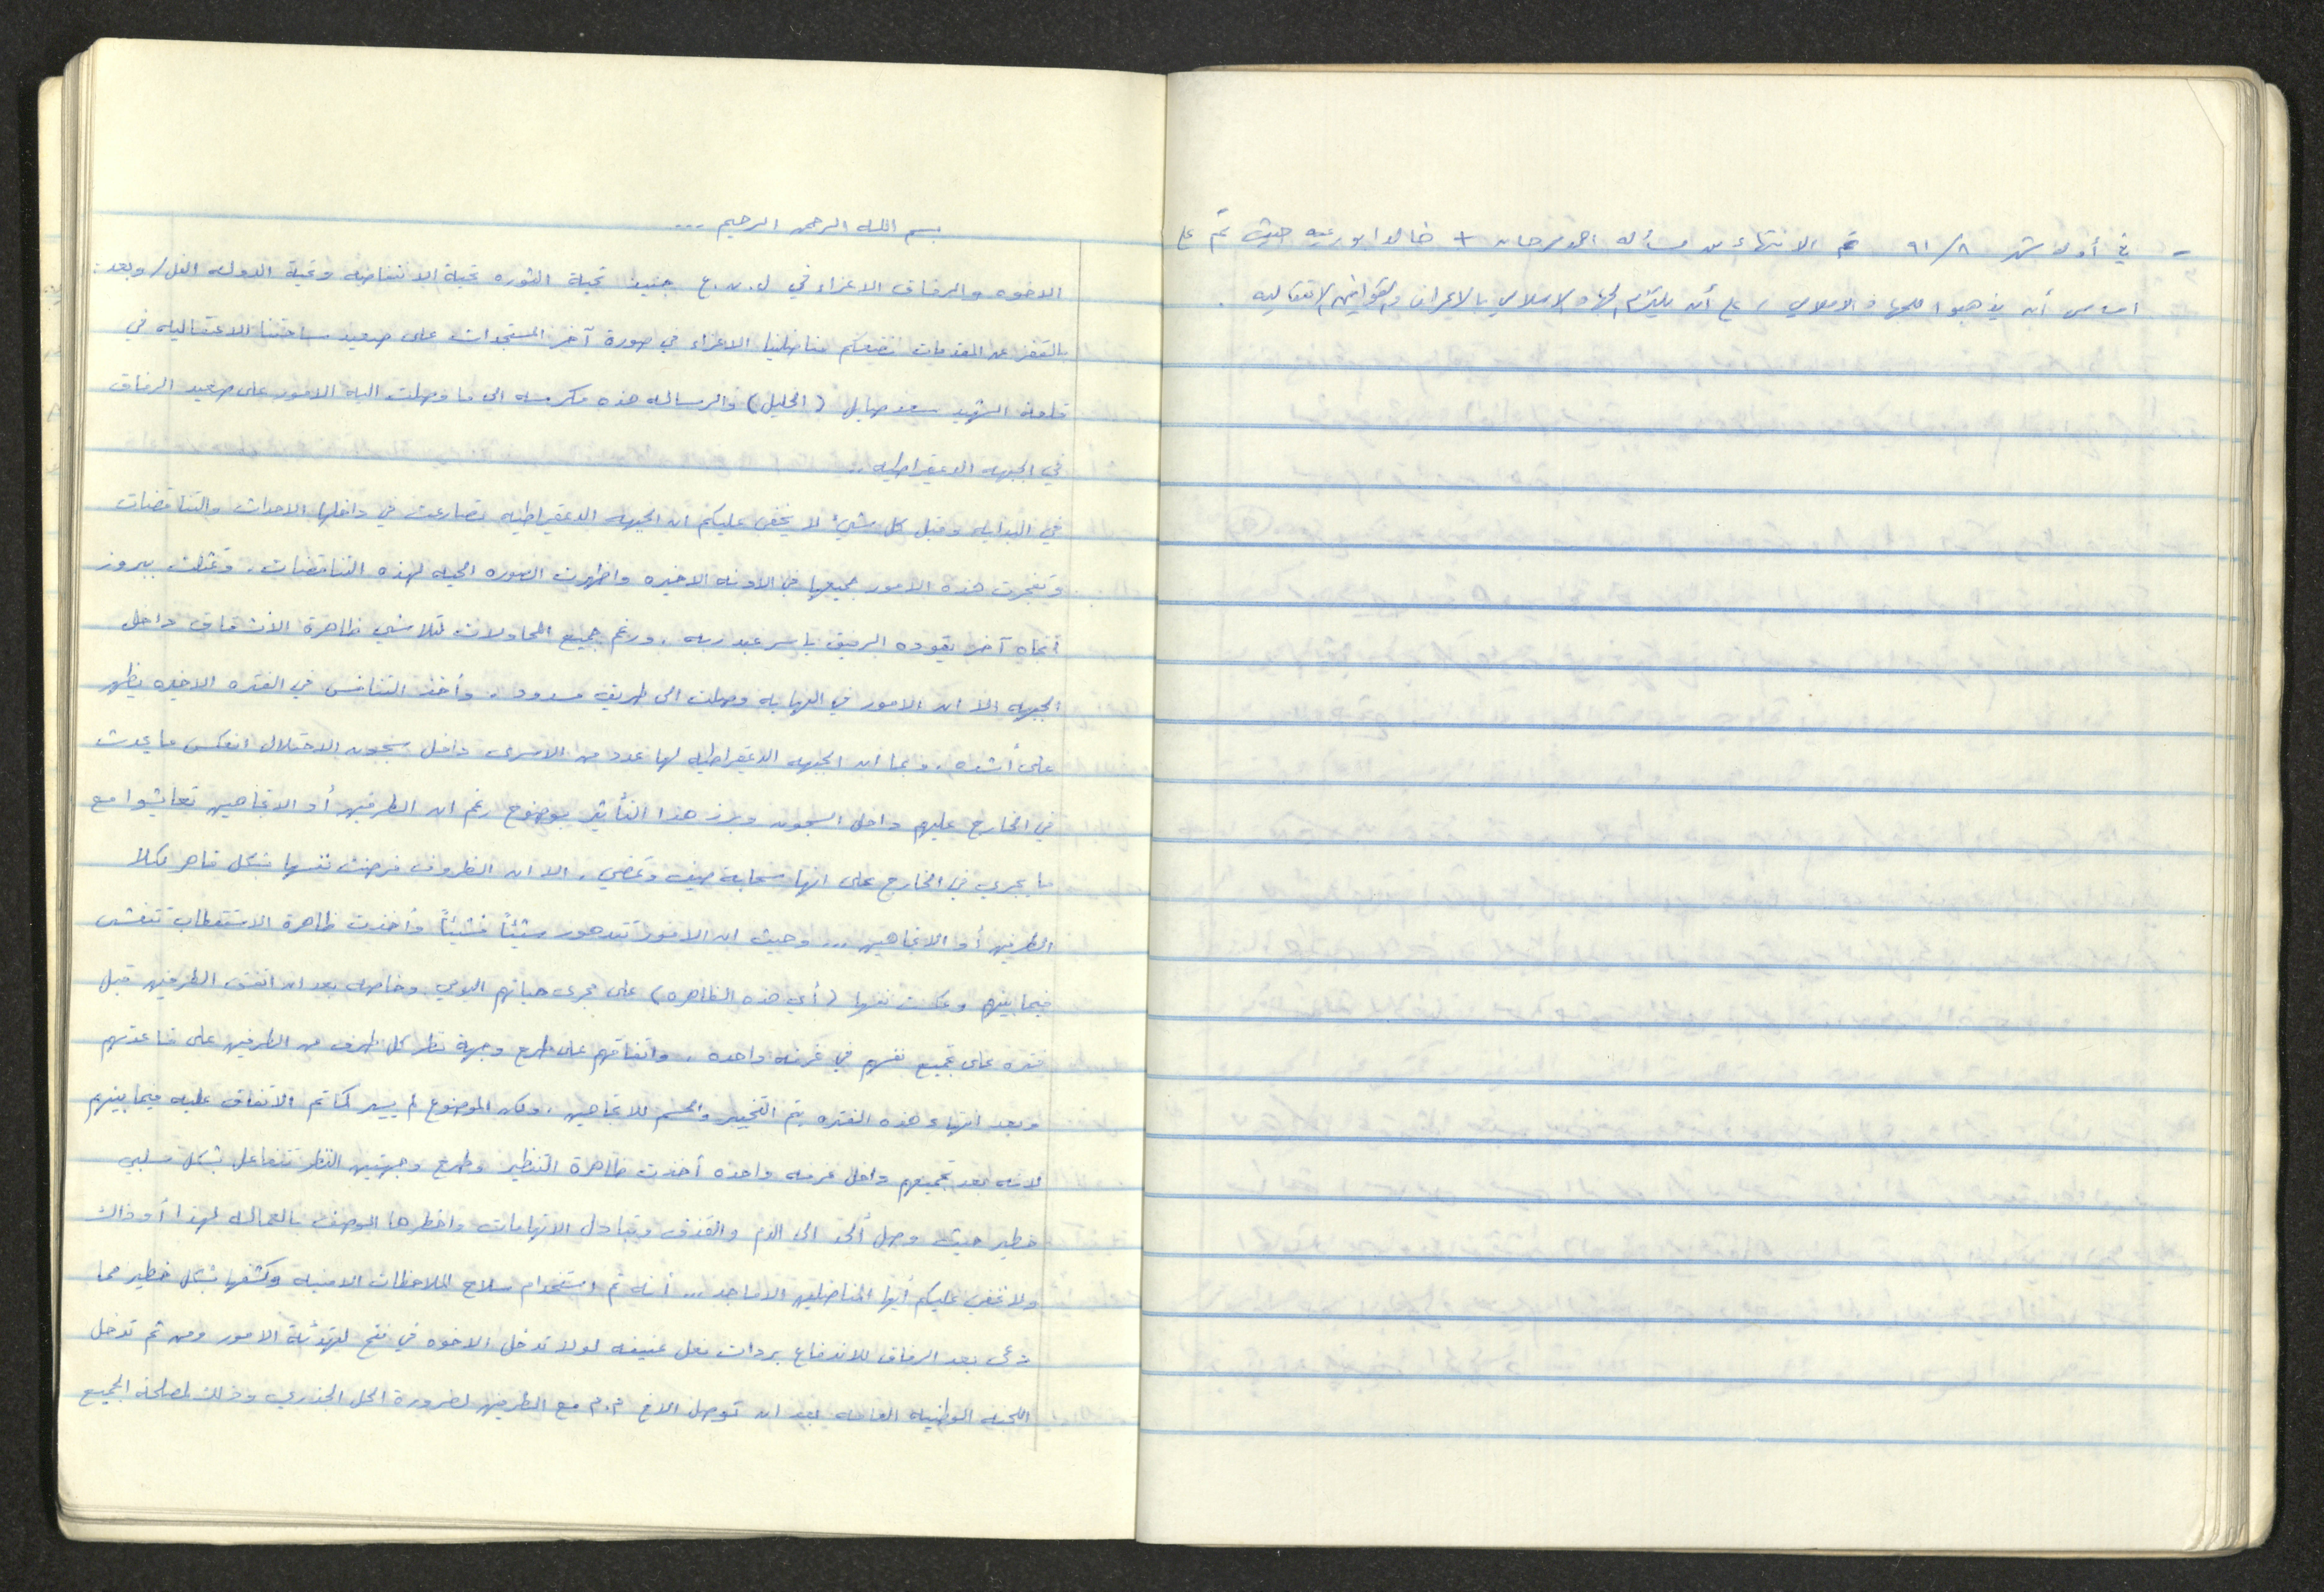 - في أول شهر ٩١/٨ تم الانتهاء من مسألة احمد سرحان + خالد ابو رعيه حيث تم على
اساس أن يذهبوا للجهاد الاسلامي، على أن يلتزم الجهاد الاسلامي بالاعراف والقوانين الاعتقاليه .
بسم الله الرحمن الرحيم ...
الاخوه والرفاق الاعزاء في ل.ن.ع جنيد تحية الثوره تحية الانتفاضه وتحية الدوله الفل/وبعد:
بالقفز عن المقدمات نضعكم مناضلينا الاعزاء في صورة آخر المستجدات على صعيد ساحتنا الاعتقاليه في
قلعة الشهيد سعد صايل (الخليل) والرساله هذه مكرسه الى ما وصلت اليه الامور على صعيد الرفاق
في الجبهه الديمقراطيه ..
في البدايه وقبل كل شيء لا يخفى عليكم ان الجبهه الديمقراطيه تصارعت في داخلها الاحداث والتناقضات
وتفجرت هذه الامور جميعها في الاونه الاخيره واظهرت الصوره الحيه لهذه التناقضات. وتمثلت ببروز
اتجاه آخر يقوده الرفيق ياسر عبد ربه . ورغم جميع المحاولات لتلاشي ظاهرة الانشقاق داخل
الجبهه الا ان الامور في النهايه وصلت الى طريق مسدود . وأخذ التنافس في الفتره الاخيره يظهر
على أشده . وبما ان الجبهه الديمقراطيه لها عدد من الاسرى داخل سجون الاحتلال انعكس ما يحدث
في الخارج عليهم داخل السجون وبرز هذا التأثير بوضوح رغم ان الطرفين أو الاتجاهين تعايشوا مع
ما يجري في الخارج على انها سحابة صيف وتمضي . الا ان الظروف فرضت نفسها بشكل قاهر لكلا
الطرفين أو الاتجاهين ... وحيث ان الامور تتدهور شيئاً فشيئاً وأخذت ظاهرة الاستقطاب تتفشى
فيما بينهم وعكست نفسها (أي هذه الظاهره) على مجرى حياتهم اليومي. وخاصه بعد ان اتفق الطرفين قبل
فتره على تجميع نفسهم في غرفه واحده . واتفاقهم على طرح وجهة نظر كل طرف من الطرفين على قاعدتهم
وبعد انتهاء هذه الفتره يتم التخيير والحسم للاتجاهين . ولكن الموضوع لم يسير كما تم الاتفاق عليه فيما بينهم
لانه بعد تجميعهم داخل غرفه واحده أخذت ظاهرة التنظير وطرح وجهتين النظر تتفاعل بشكل سلبي
خطير حيث وصل الحد الى الذم والقذف وتبادل الاتهامات واخطرها الوصف بالعماله لهذا أو ذاك
ولا يخفى عليكم أيها المناضلين الاماجد ... أنه تم استخدام سلاح الملاحظات الامنيه وكشفها بشكل خطير مما
دعى بعد الرفاق للاندفاع بردات فعل عنيفه لولا تدخل الاخوه في فتح لتهدئة الامور ومن ثم تدخل
اللجنه الوطنيه العامه بعد ان توصل الاخ م.م مع الطرفين لضرورة الحل الجذري وذلك لمصلحة الجميع